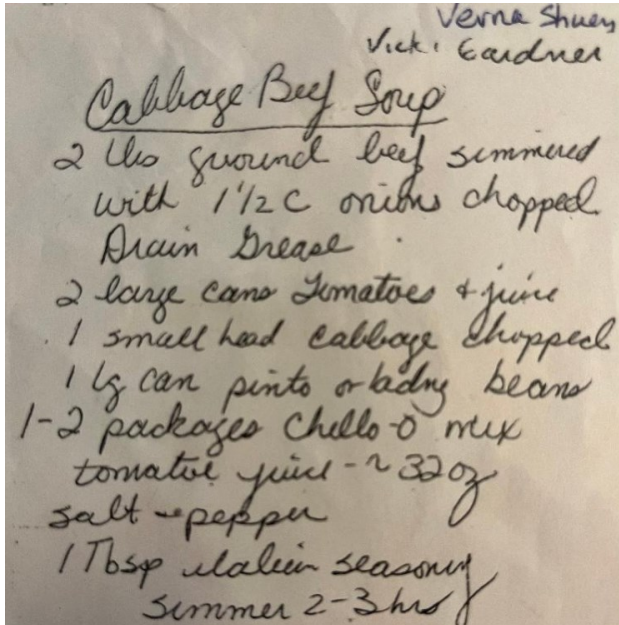 Verna Shuey
Vicki Gardner
Cabbage Beef Soup
2 lbs ground beef simmered
with 1 1/2 C onions chopped
Drain Grease
2 large cans Tomatoes & juice
1 small head cabbage chopped
1 lg can pinto or kidny beans
1-2 packages Chello-O mix
tomatoe juice - ~ 32 oz
salt & pepper
1 Tbsp italian seasoning
simmer 2-3 hrs